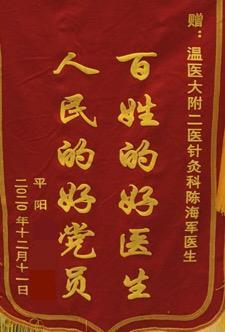 赠：温医大附二医针灸科陈海军医生
百姓的好医生
人民的好党员
平阳
二〇二〇年十二月十一日